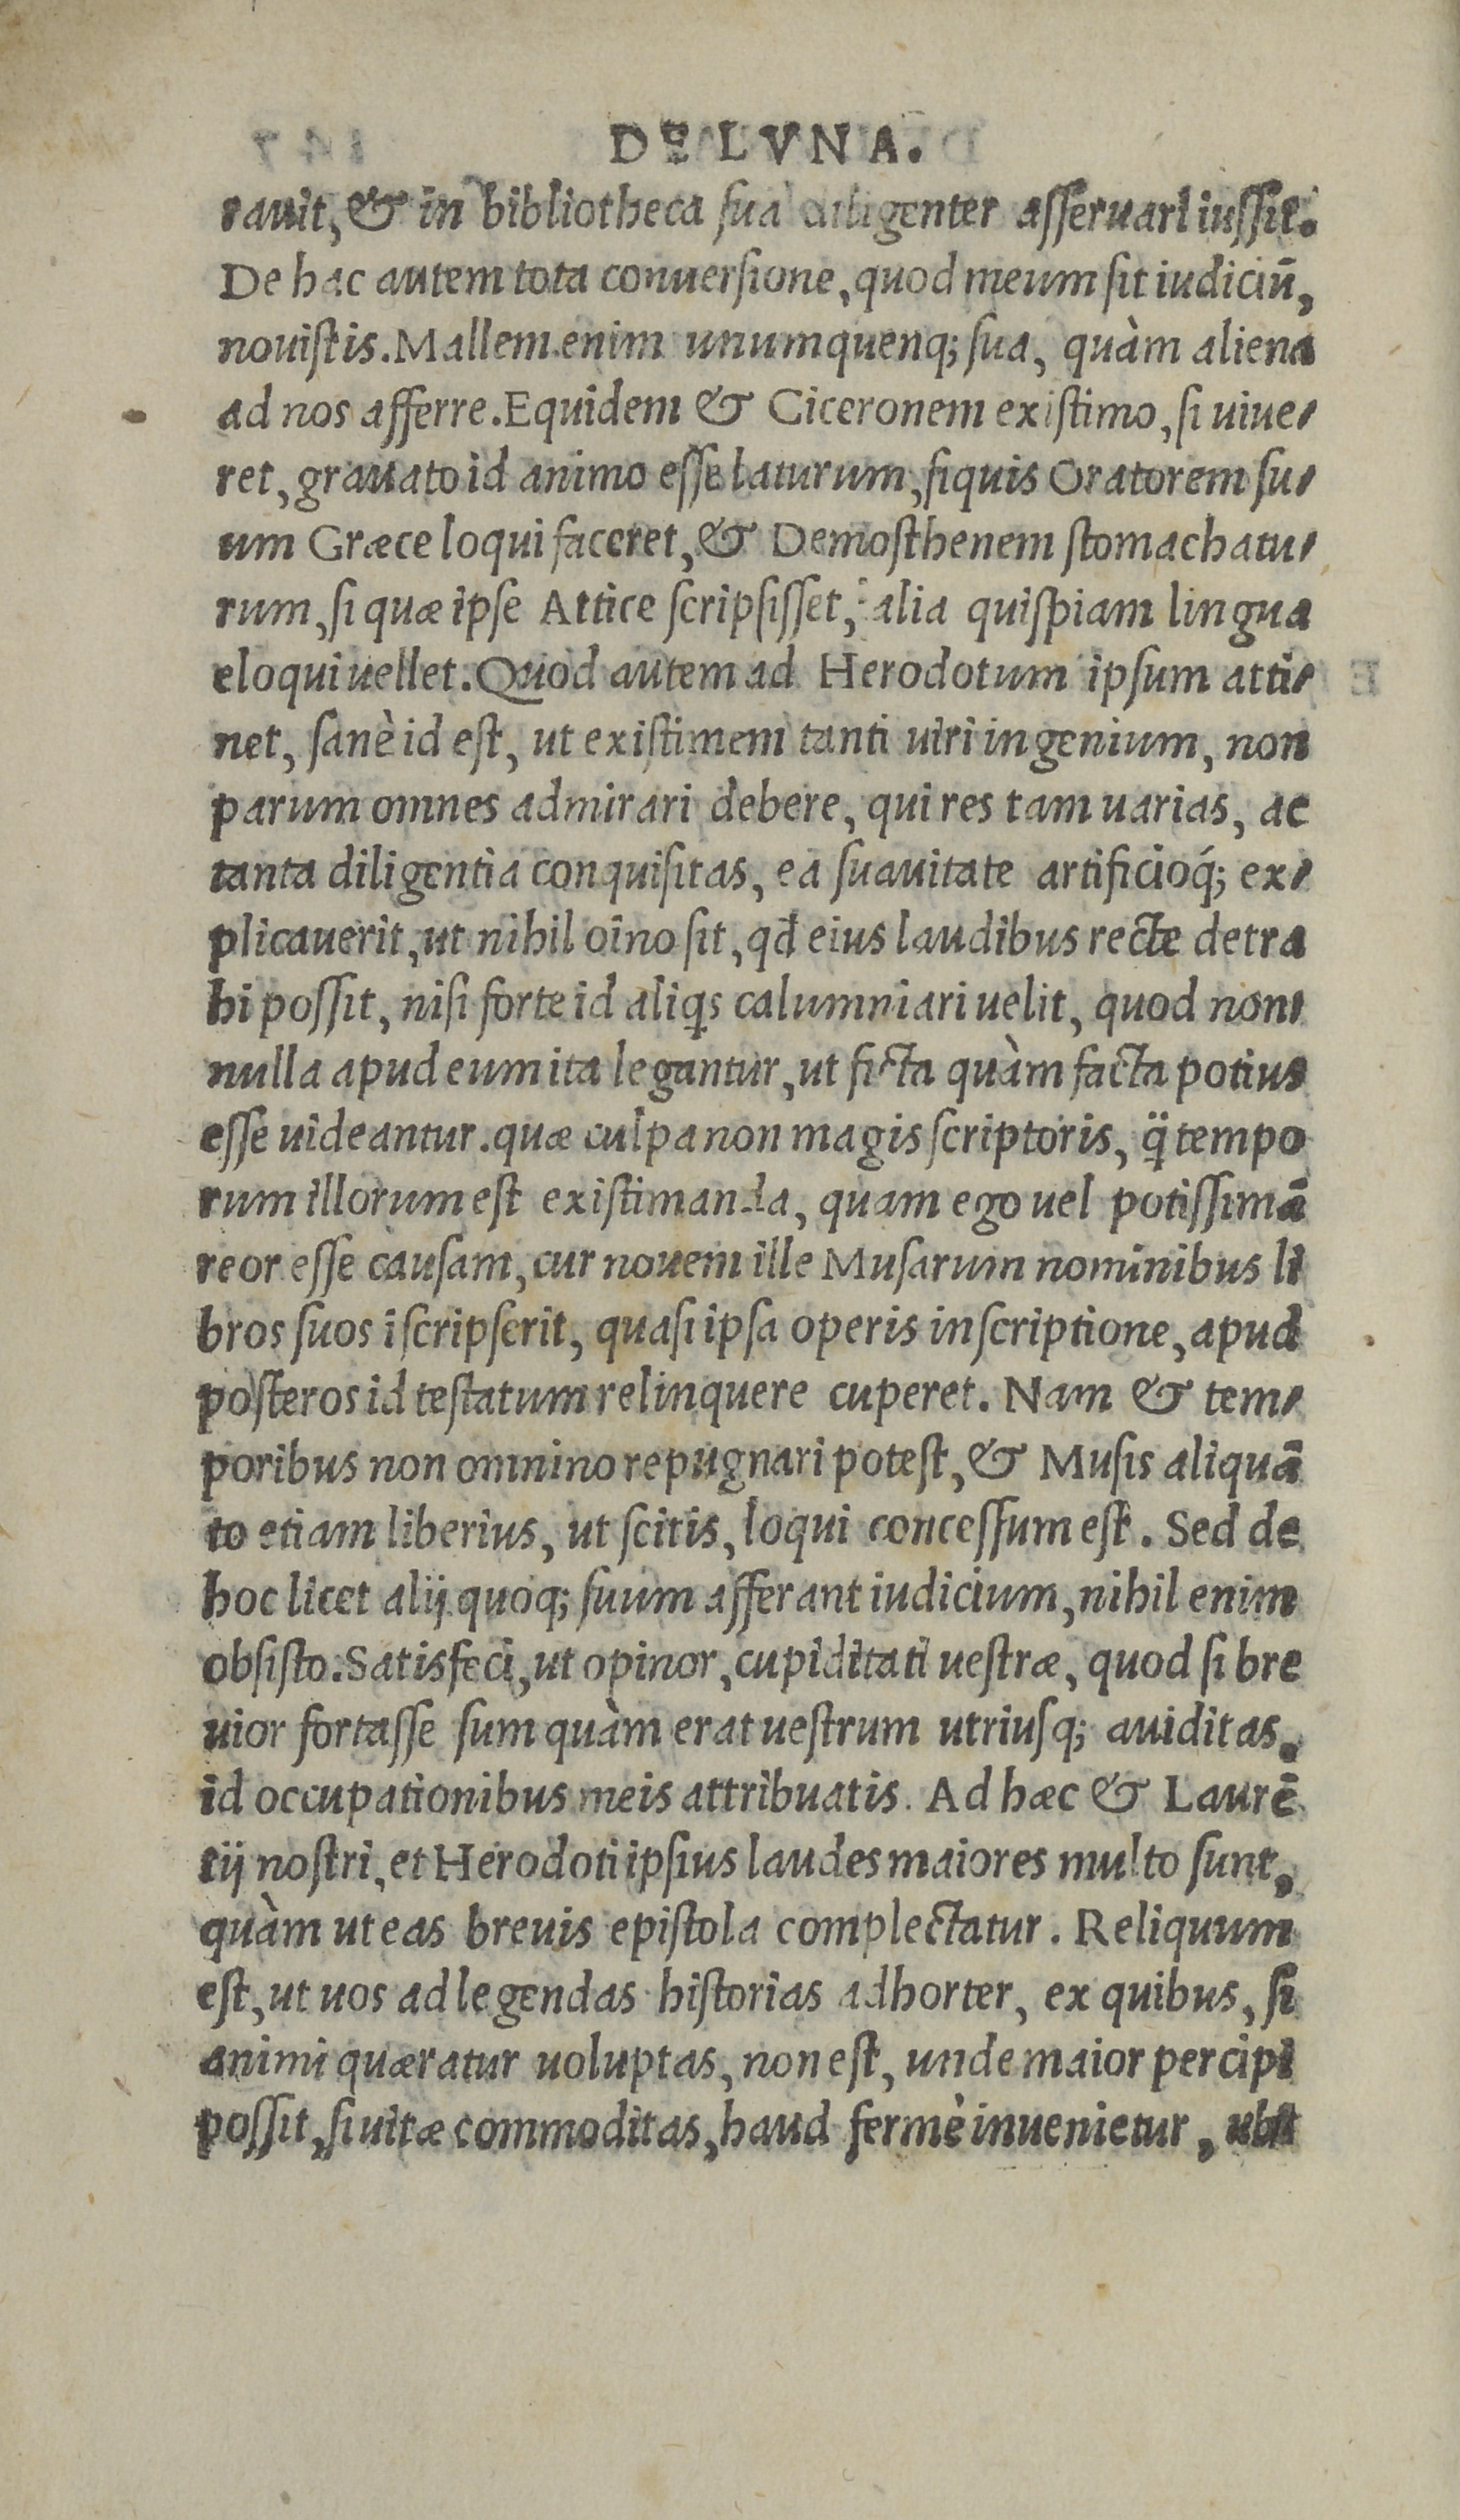 DE LVNA.
rauit, & in bibliotheca sua diligenter asseruari iussit.
De hac autem tota conuersione, quod meum sit iudiciū,
nouistis. Mallem enim unumquenq; sua, quàm aliena
ad nos afferre. Equidem & Ciceronem existimo, si uiue-
ret, grauato id animo esse laturum, siquis Oratorem su-
um Græce loqui faceret, & Demosthenem stomachatu-
rum, si quæ ipse Attice scripsisset, alia quispiam lingua
eloqui uellet. Quod autem ad Herodotum ipsum atti-
net, sanè id est, ut existimem tanti uiri ingenium, non
parum omnes admirari debere, qui res tam uarias, ac
tanta diligentia conquisitas, ea suauitate artificioq́; ex-
plicauerit, ut nihil oīno sit, qđ eius laudibus recte detra
hi possit, nisi forte id aliqs calumniari uelit, quod non-
nulla apud eum ita legantur, ut ficta quàm facta potius
esse uideantur. quæ culpa non magis scriptoris, q̈ tempo
rum illorum est existimanda, quam ego uel potissimā
reor esse causam, cur nouem ille Musarum nominibus li
bros suos iscripserit, quasi ipsa operis inscriptione, apud
posteros id testatum relinquere cuperet. Nam & tem-
poribus non omnino repugnari potest, & Musis aliquā
to etiam liberius, ut scitis, loqui concessum est. Sed de
hoc licet alij quoq; suum afferant iudicium, nihil enim
obsisto. Satisfeci, ut opinor, cupiditati uestræ, quod si bre
uior fortasse sum quàm erat uestrum utriusq; auiditas.
id occupationibus meis attribuatis. Ad hæc & Laurē
tij nostri, et Herodoti ipsius laudes maiores multo sunt,
quàm ut eas breuis epistola complectatur. Reliquum
est, ut uos ad legendas historias adhorter, ex quibus, si
animi quæratur uoluptas, non est, unde maior percipi
possit, si uitæ commoditas, haud fermè inuenietur, ubi